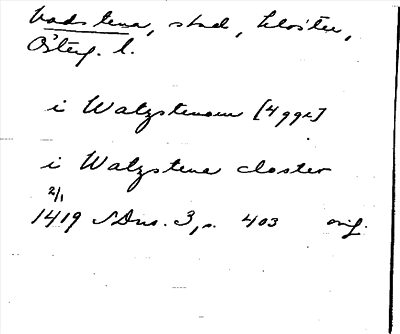 Vadstena, stad, kloster,
Österg. l.
i Watzstenom [4 ggr]
i Watzstena closter
2/1
1419 SDns. 3, s. 403 orig.